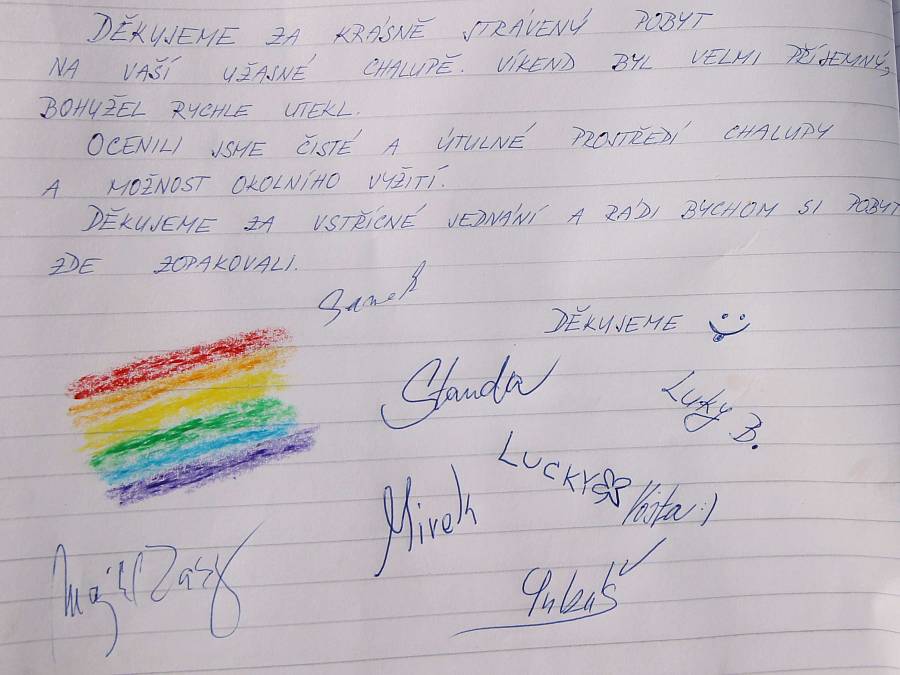 DĚKUJEME ZA KRÁSNĚ STRÁVENÝ POBYT
NA VAŠÍ UŽASNÉ CHALUPĚ. VÍKEND BYL VELMI PŘÍJEMNÝ,
BOHUŽEL RYCHLE UTEKL.
OCENILI JSME ČISTÉ A ÚTULNÉ PROSTŘEDÍ CHALUPY
A MOŽNOST OKOLNÍHO VYŽITÍ.
DĚKUJEME ZA VSTŘÍCNÉ JEDNÁNÍ A RÁDI BYCHOM SI POBYT
ZDE ZOPAKOVALI.
DĚKUJEME
Standa
Luky B.
LUCKY
Mirek
Vojta :)
Lukáš